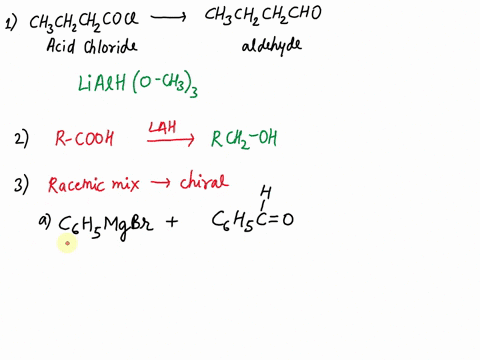 1) CH₃CH₂CH₂COCl ⟶ CH₃CH₂CH₂CHO
Acid Chloride aldehyde
LiAlH(O-CH₃)₃
2) R-COOH LAH ⟶ RCH₂-OH
3) Racemic mix → chiral
H
a) C₆H₅MgBr + C₆H₅C=O